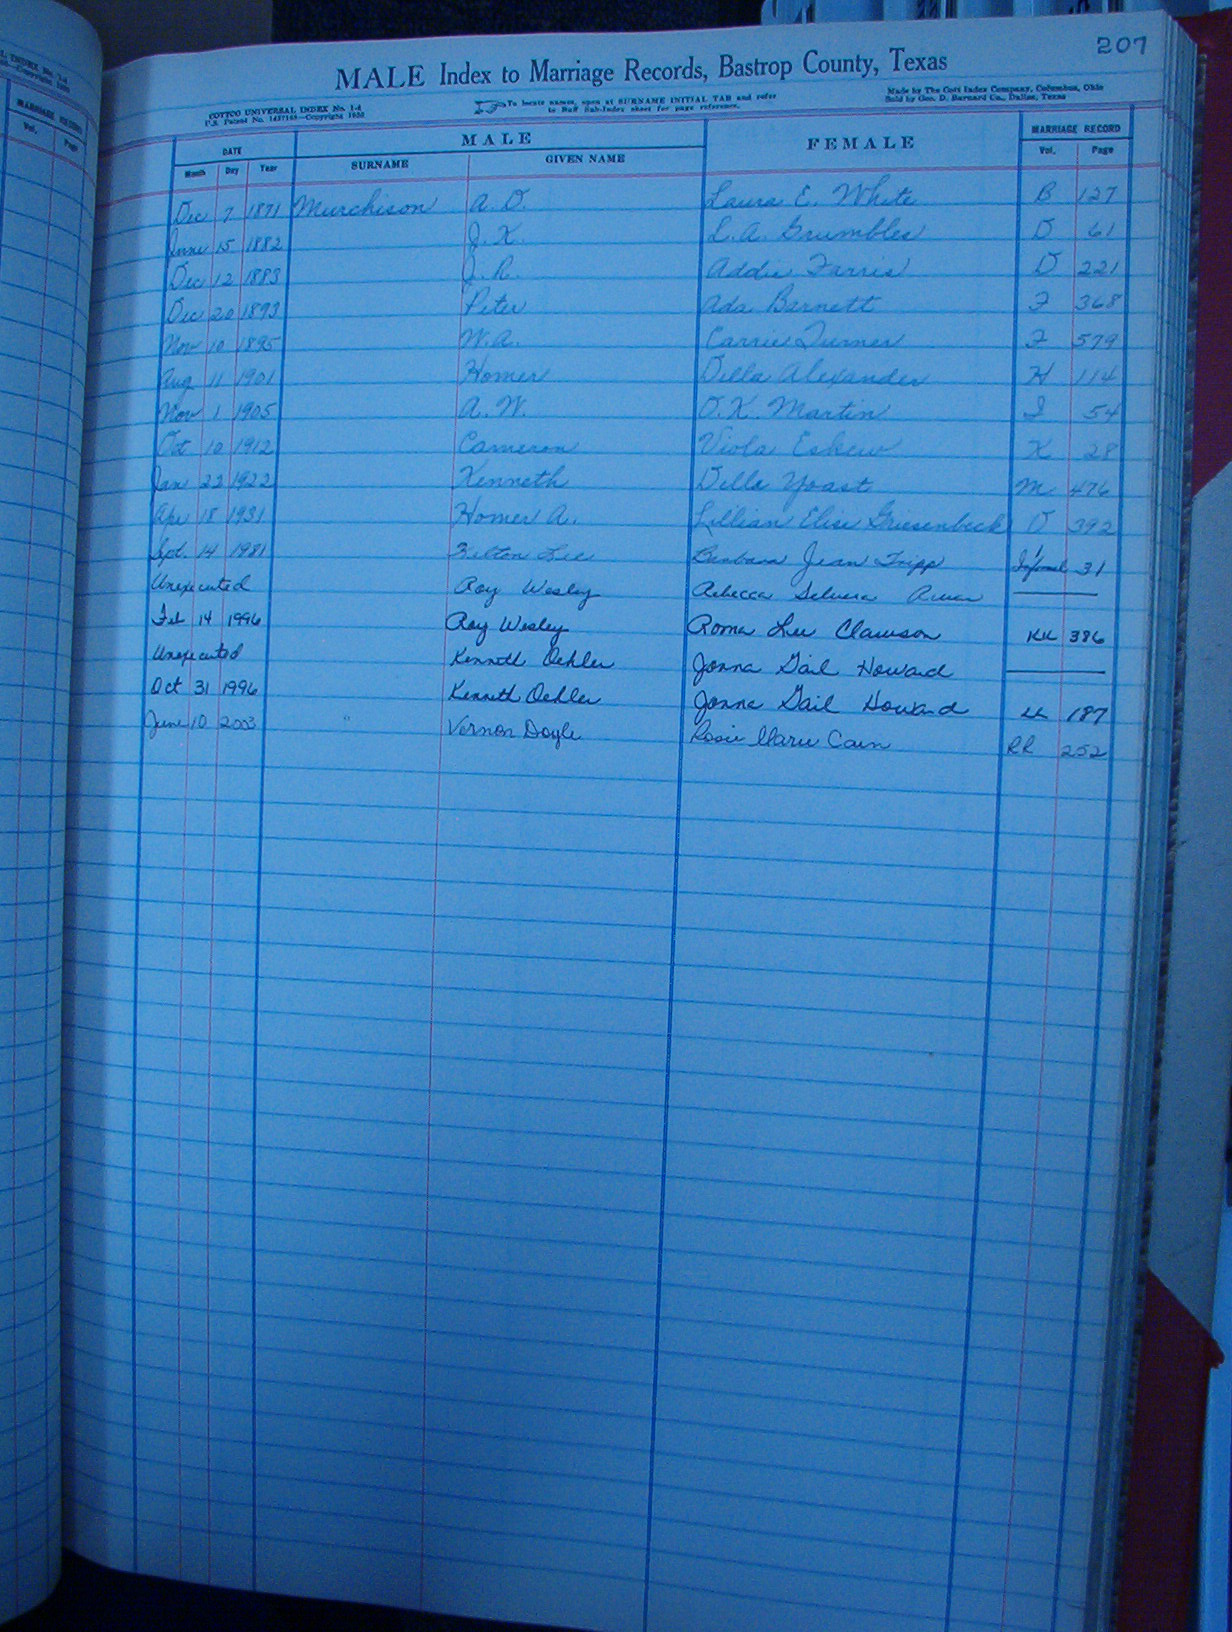 207
MALE Index to Marriage Records, Bastrop County, Texas
COTTCO UNIVERSAL INDEX No. 1-d
U.S. Patent No.
To locate names, open at SURNAME INITIAL TAB and refer
to Buff Sub-Index sheet for page reference.
Made by The Cott Index Company, Columbus, Ohio
Sold by Geo. D. Barnard Co., Dallas, Texas
DATE MALE FEMALE MARRIAGE RECORD
Month Day Year SURNAME GIVEN NAME Vol. Page
Dec 7 1871 Murchison A. D. Laura E. White B 127
June 15 1882 J. K. L. A. Grumbles D 61
Dec 12 1883 J. R. Addie Farris D 221
Dec 20 1893 Peter Ada Barnett F 368
Nov 10 1895 W. A. Carrie Turner F 579
Aug 11 1901 Homer Della Alexander H 114
Nov 1 1905 A. W. O. K. Martin I 54
Oct 10 1912 Cameron Viola Eskew K 28
Jan 22 1922 Kenneth Della Yoast M 476
Apr 18 1931 Homer A. Lillian Elise Griesenbeck O 392
Sept. 14 1981 Lee Barbara Jean Tripp Informal 31
Unexecuted Roy Wesley Rebecca
Feb 14 1996 Roy Wesley Roma Lee Clawson KK 386
Unexecuted Kenneth Oehler Jonna Gail Howard
Oct 31 1996 Kenneth Oehler Jonna Gail Howard LL 187
June 10 2003 Vernon Doyle Rosie Marie Cain RR 252